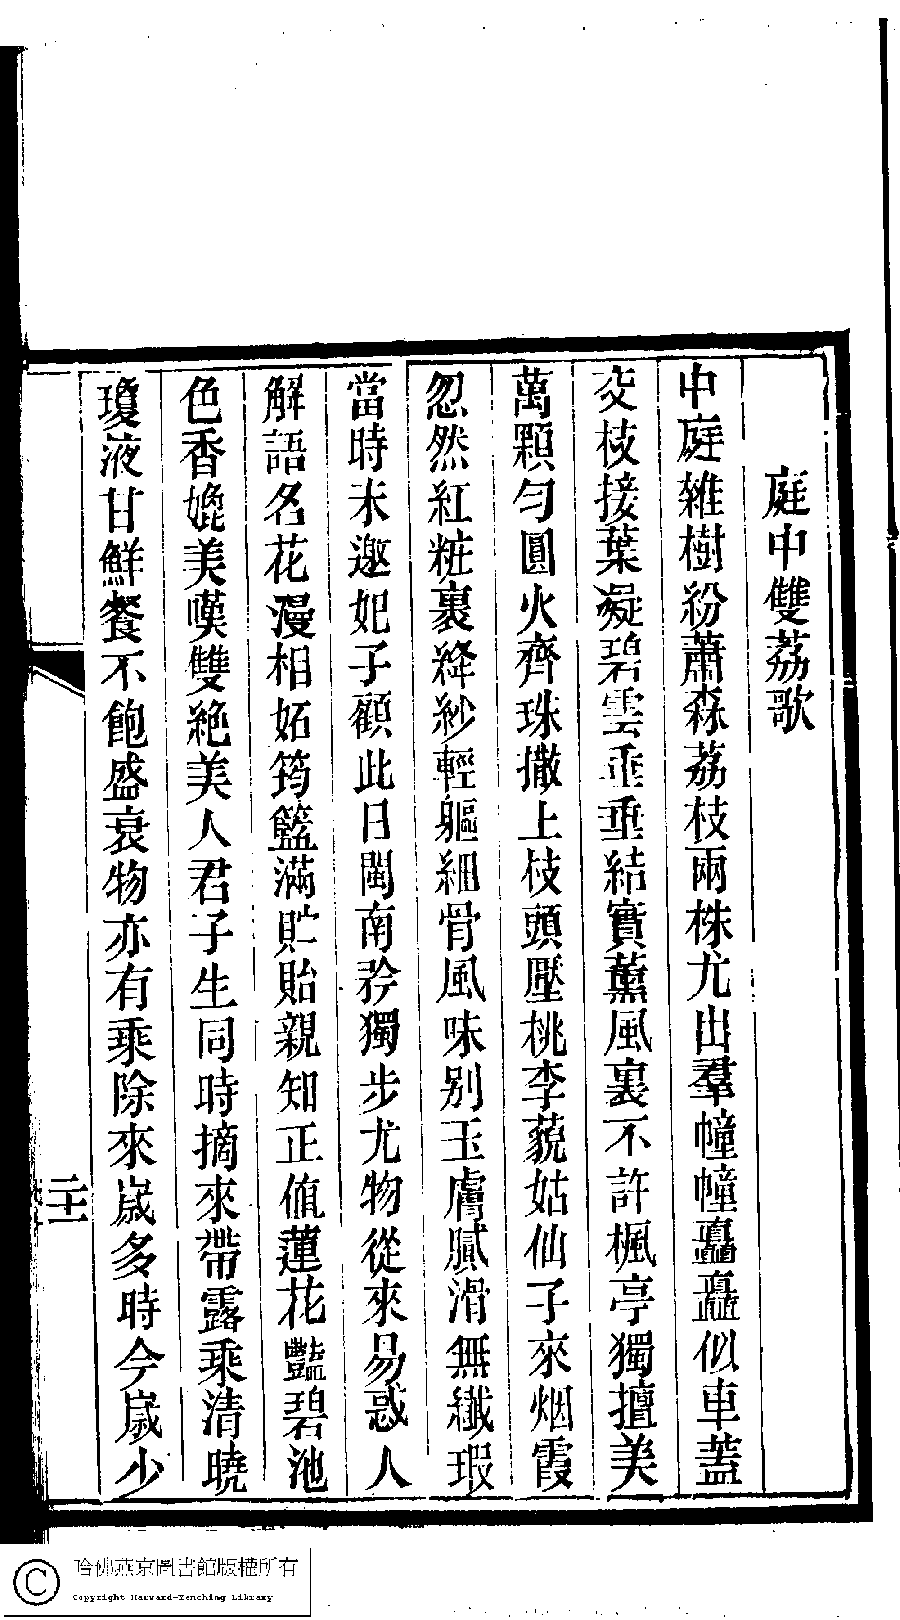 庭中雙荔歌
中庭雜樹紛蕭森荔枝兩株尤出羣幢幢矗矗似車蓋
交枝接葉凝碧雲垂垂結實薰風裏不許楓亭獨擅美
萬顆勻圓火齊珠撒上枝頭壓桃李藐姑仙子來烟霞
忽然紅粧裹絳紗輕軀細骨風味別玉膚膩滑無纖瑕
當時未邀妃子顧此日閩南矜獨步尤物從來易惑人
解語名花漫相妬筠籃滿貯貽親知正值蓮花豔碧池
色香媲美嘆雙絶美人君子生同時摘來帶露乘清曉
瓊液甘鮮餐不飽盛衰物亦有乘除來嵗多時今嵗少
二十一
哈佛燕京圖書館版權所有
Copyright Harvard-Yenching Library